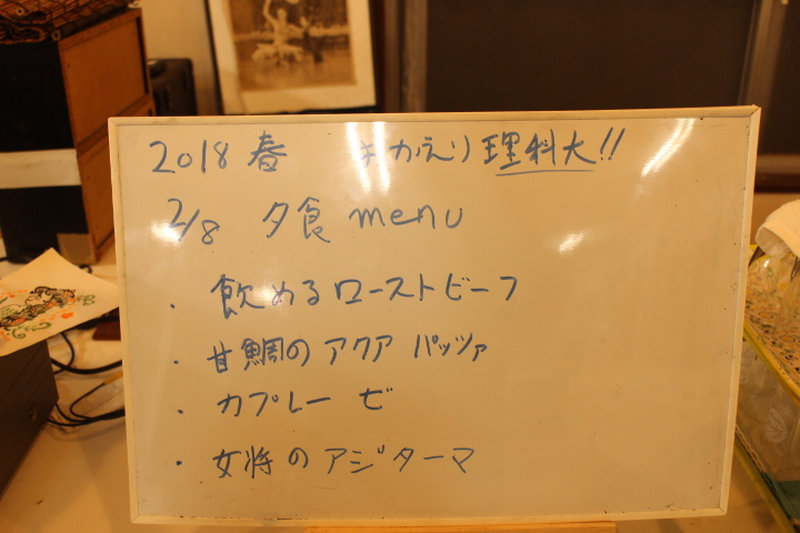 2018 春 おかえり 理科大!!
2/8 夕食 menu
・ 飲めるローストビーフ
・ 甘鯛のアクアパッツァ
・ カプレーゼ
・ 女将のアジターマ